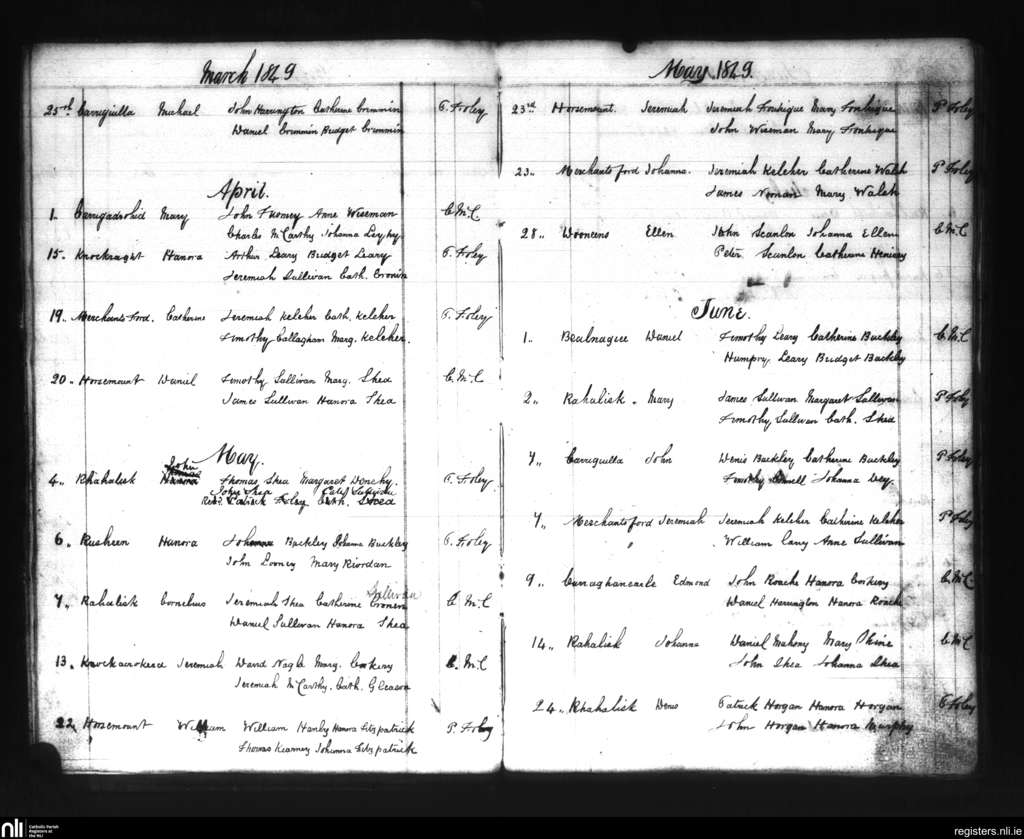 March 1849
25rd Carriguilla Michael John Harrington Catherine Crimmin P. Foley
Daniel Crimmin Budget Crimmin
April.
1. Carrigadrohid Mary John Twomey Anne Wiseman C. McC
Charles McCarthy Johanna Leyhy
15. Knockraght Hanora Arthur Leary Budget Leary P. Foley
Jeremiah Sullivan Cath. Cronin
19.. Merchants Ford. Catherine Jeremiah Kelcher Cath. Kelcher P. Foley
Timothy Callaghan Marg. Kelcher.
20.. Horsemount Daniel Timothy Sullivan Marg. Shea C. McC
James Sullivan Hanora Shea
May.
John
4.. Rhahalisk Thomas Shea Margaret Donehy. P. Foley
John Shea Cath Sullivan
Revd. Patrick Foley Cath. Shea
6. Rusheen Hanora John Buckley Johanna Buckley P. Foley
John Looney Mary Riordan
Sullivan
7.. Rahalisk Cornelius Jeremiah Shea Catherine Cronin C. McC
Daniel Sullivan Hanora Shea
13. Jeremiah David Nagle Mary. Corkery C. McC
Jeremiah McCarthy. Cath. Gleason
22. Horsemount William William Hanly Hanora Fitzpatrick P. Foley
Thomas Kearney Johanna Fitzpatrick
May 1849.
23rd Horsemount. Jeremiah Jeremiah Mary P Foley
John Wiseman Mary
23.. Merchants ford Johanna. Jeremiah Kelcher Catherine Walsh P Foley
James Noonan Mary Walsh
28.. Wooneens Ellen John Scanlon Johanna Ellen C. McC
Peter Scanlon Catherine
June.
1.. Bealnagree Daniel Timothy Leary Catherine Buckley C. McC
Humpry Leary Budget Buckley
2.. Rahalisk. Mary James Sullivan Margaret Sullivan P Foley
Timothy Sullivan Cath. Shea
7.. Carriguilla John Denis Buckley Catherine Buckley P Foley
Timothy Johanna Dey.
7.. Merchants ford Jeremiah Jeremiah Kelcher Catherine Kelcher P Foley
William Carey Anne Sullivan
9.. Edmond John Roache Hanora Corkery C. McC
Daniel Harrington Hanora Roache
14.. Rahalisk Johanna Daniel Mahony Mary Shine C. McC
John Shea Johanna Shea
24.. Rhahalisk Denis Patrick Horgan Hanora Horgan P Foley
John Horgan Hanora Murphy
nli Catholic Parish
Registers at
the NLI
registers.nli.ie